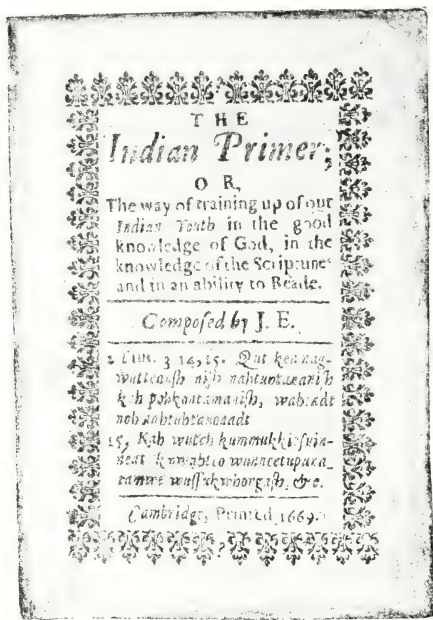 THE
Indian Primer;
OR,
The way of training up of our
Indian Youth in the good
knowledge of God, in the
knowledge of the Scriptures
and in an ability to Reade.
Composed by J. E.
2 Tim. 3 14, 15. Qut ken nag-
wutteaush nish nahtuhtauanish
kah pohkontamanish, wahteadt
noh nahtuhtauonadt
15, Kah wutch kummukki-
kowahteo wunneetupana-
tamwe wussukwhongash, &c.
Cambridge, Printed 1669.